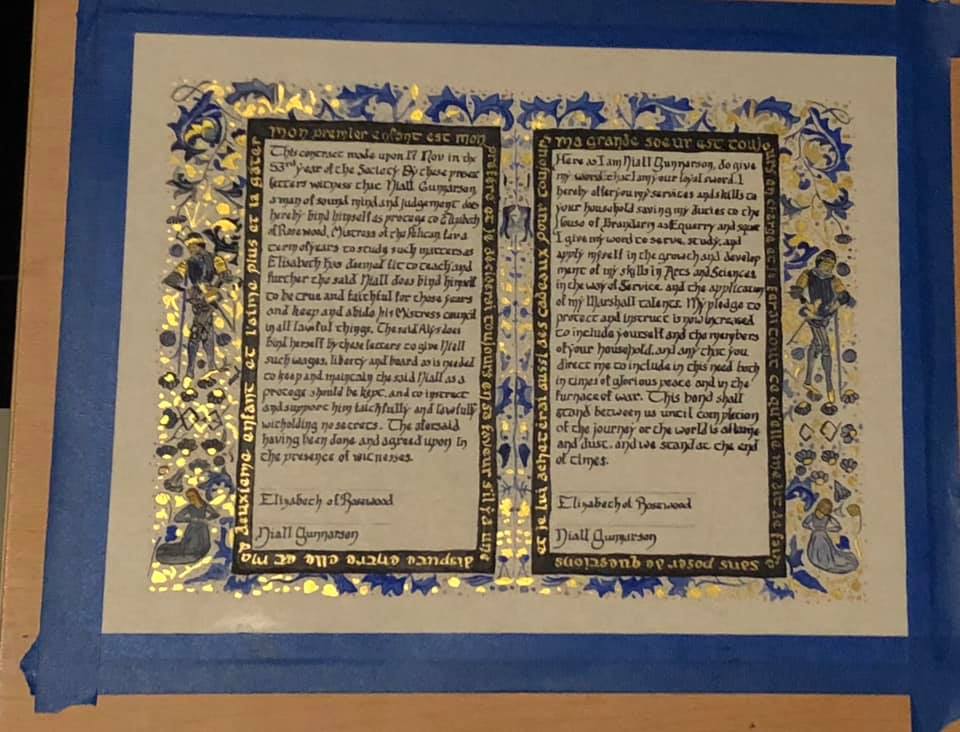 mon premier enfant est mon
préféré et je déciderai toujours en sa faveur s'il y a une
dispute entre elle et ma
deuxieme enfant et l'aine plus et la gater
This contract made upon 17 Nov in the
53rd year of the Society By these presnt
letters witness that Niall Gunnarson
a man of sound mind and judgement does
hereby bind himself as protege to Elizabeth
of Rosewood, Mistress of the Pelican for a
term of years to study such matters as
Elisabeth has deemed fit to teach, and
further the said Niall does bind himself
to be true and faithful for those years
and keep and abide his Mistress council
in all lawful things. The said Alys does
bind herself by these letters to give Niall
such wages, liberty and board as is needed
to keep and maintain the said Niall as a
protege should be kept, and to instruct
and support him faithfully and lawfully
witholding no secrets. The aforsaid
having been done and agreed upon in
the presence of witnesses.
Elizabeth of Rosewood
Niall Gunnarson
ma grande soeur est toujours en charge et
tout ce qu'elle me dit de faire
sans poser de questions
et je lui achèterai aussi des cadeaux pour toujours
Here as I am Niall Gunnarson, do give
my word that I am your loyal sword. I
hereby offer you my services and skills to
your household saving my duties to the
House of Brandarm as Equerry and squire
I give my word to serve, study, and
apply myself in the growth and develop
ment of my skills in Arts and Sciences
in the way of Service, and the application
of my Marshall talents. My pledge to
protect and instruct is now increased
to include yourself and the members
of your household, and any that you
direct me to include in this need both
in times of glorious peace and in the
furnace of war. This bond shall
stand between us until completion
of the journey or the world is aflame
and dust, and we stand at the end
of times.
Elizabeth of Rosewood
Niall Gunnarson